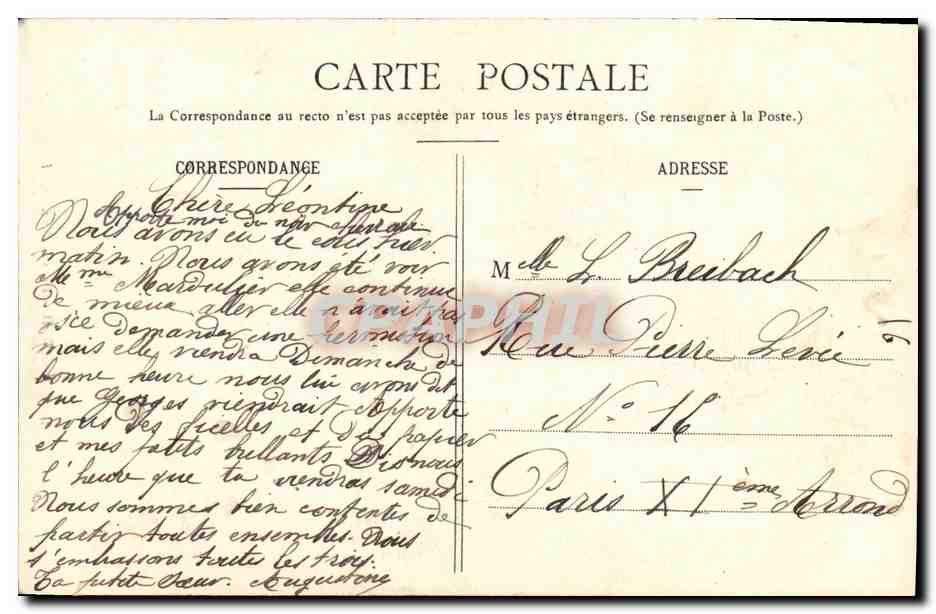 CARTE POSTALE
La Correspondance au recto n'est pas acceptée par tous les pays étrangers. (Se renseigner à la Poste.)
CORRESPONDANCE
Chère Léontine
Apporte moi du noir
Nous avons eu le colis hier
matin. Nous avons été voir
Mme elle continue
de mieux aller elle n'avait pas
osée demander une
mais elle viendra Dimanche de
bonne heure nous lui avons dit
que Georges viendrait Apporte
nous des ficelles et du papier
et mes petits brillants Dis nous
l'heure que tu viendras samedi
Nous sommes bien contentes de
partir toutes ensembles. Nous
t'embrassons toutes les trois.
Ta petite Sœur. Augustine
ADRESSE
Mlle L. Breibach
Rue Pierre Levée
No 16
Paris XIème Arrond
16
CPAPHIL